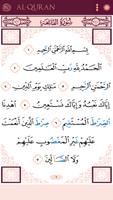 AL QURAN
سُورَةُ الفَاتِحَةِ
بِسْمِ اللَّهِ الرَّحْمَٰنِ الرَّحِيمِ
الْحَمْدُ لِلَّهِ رَبِّ الْعَالَمِينَ
الرَّحْمَٰنِ الرَّحِيمِ مَالِكِ يَوْمِ الدِّينِ
إِيَّاكَ نَعْبُدُ وَإِيَّاكَ نَسْتَعِينُ
اهْدِنَا الصِّرَاطَ الْمُسْتَقِيمَ صِرَاطَ الَّذِينَ أَنْعَمْتَ
عَلَيْهِمْ غَيْرِ الْمَغْضُوبِ عَلَيْهِمْ
وَلَا الضَّالِّينَ